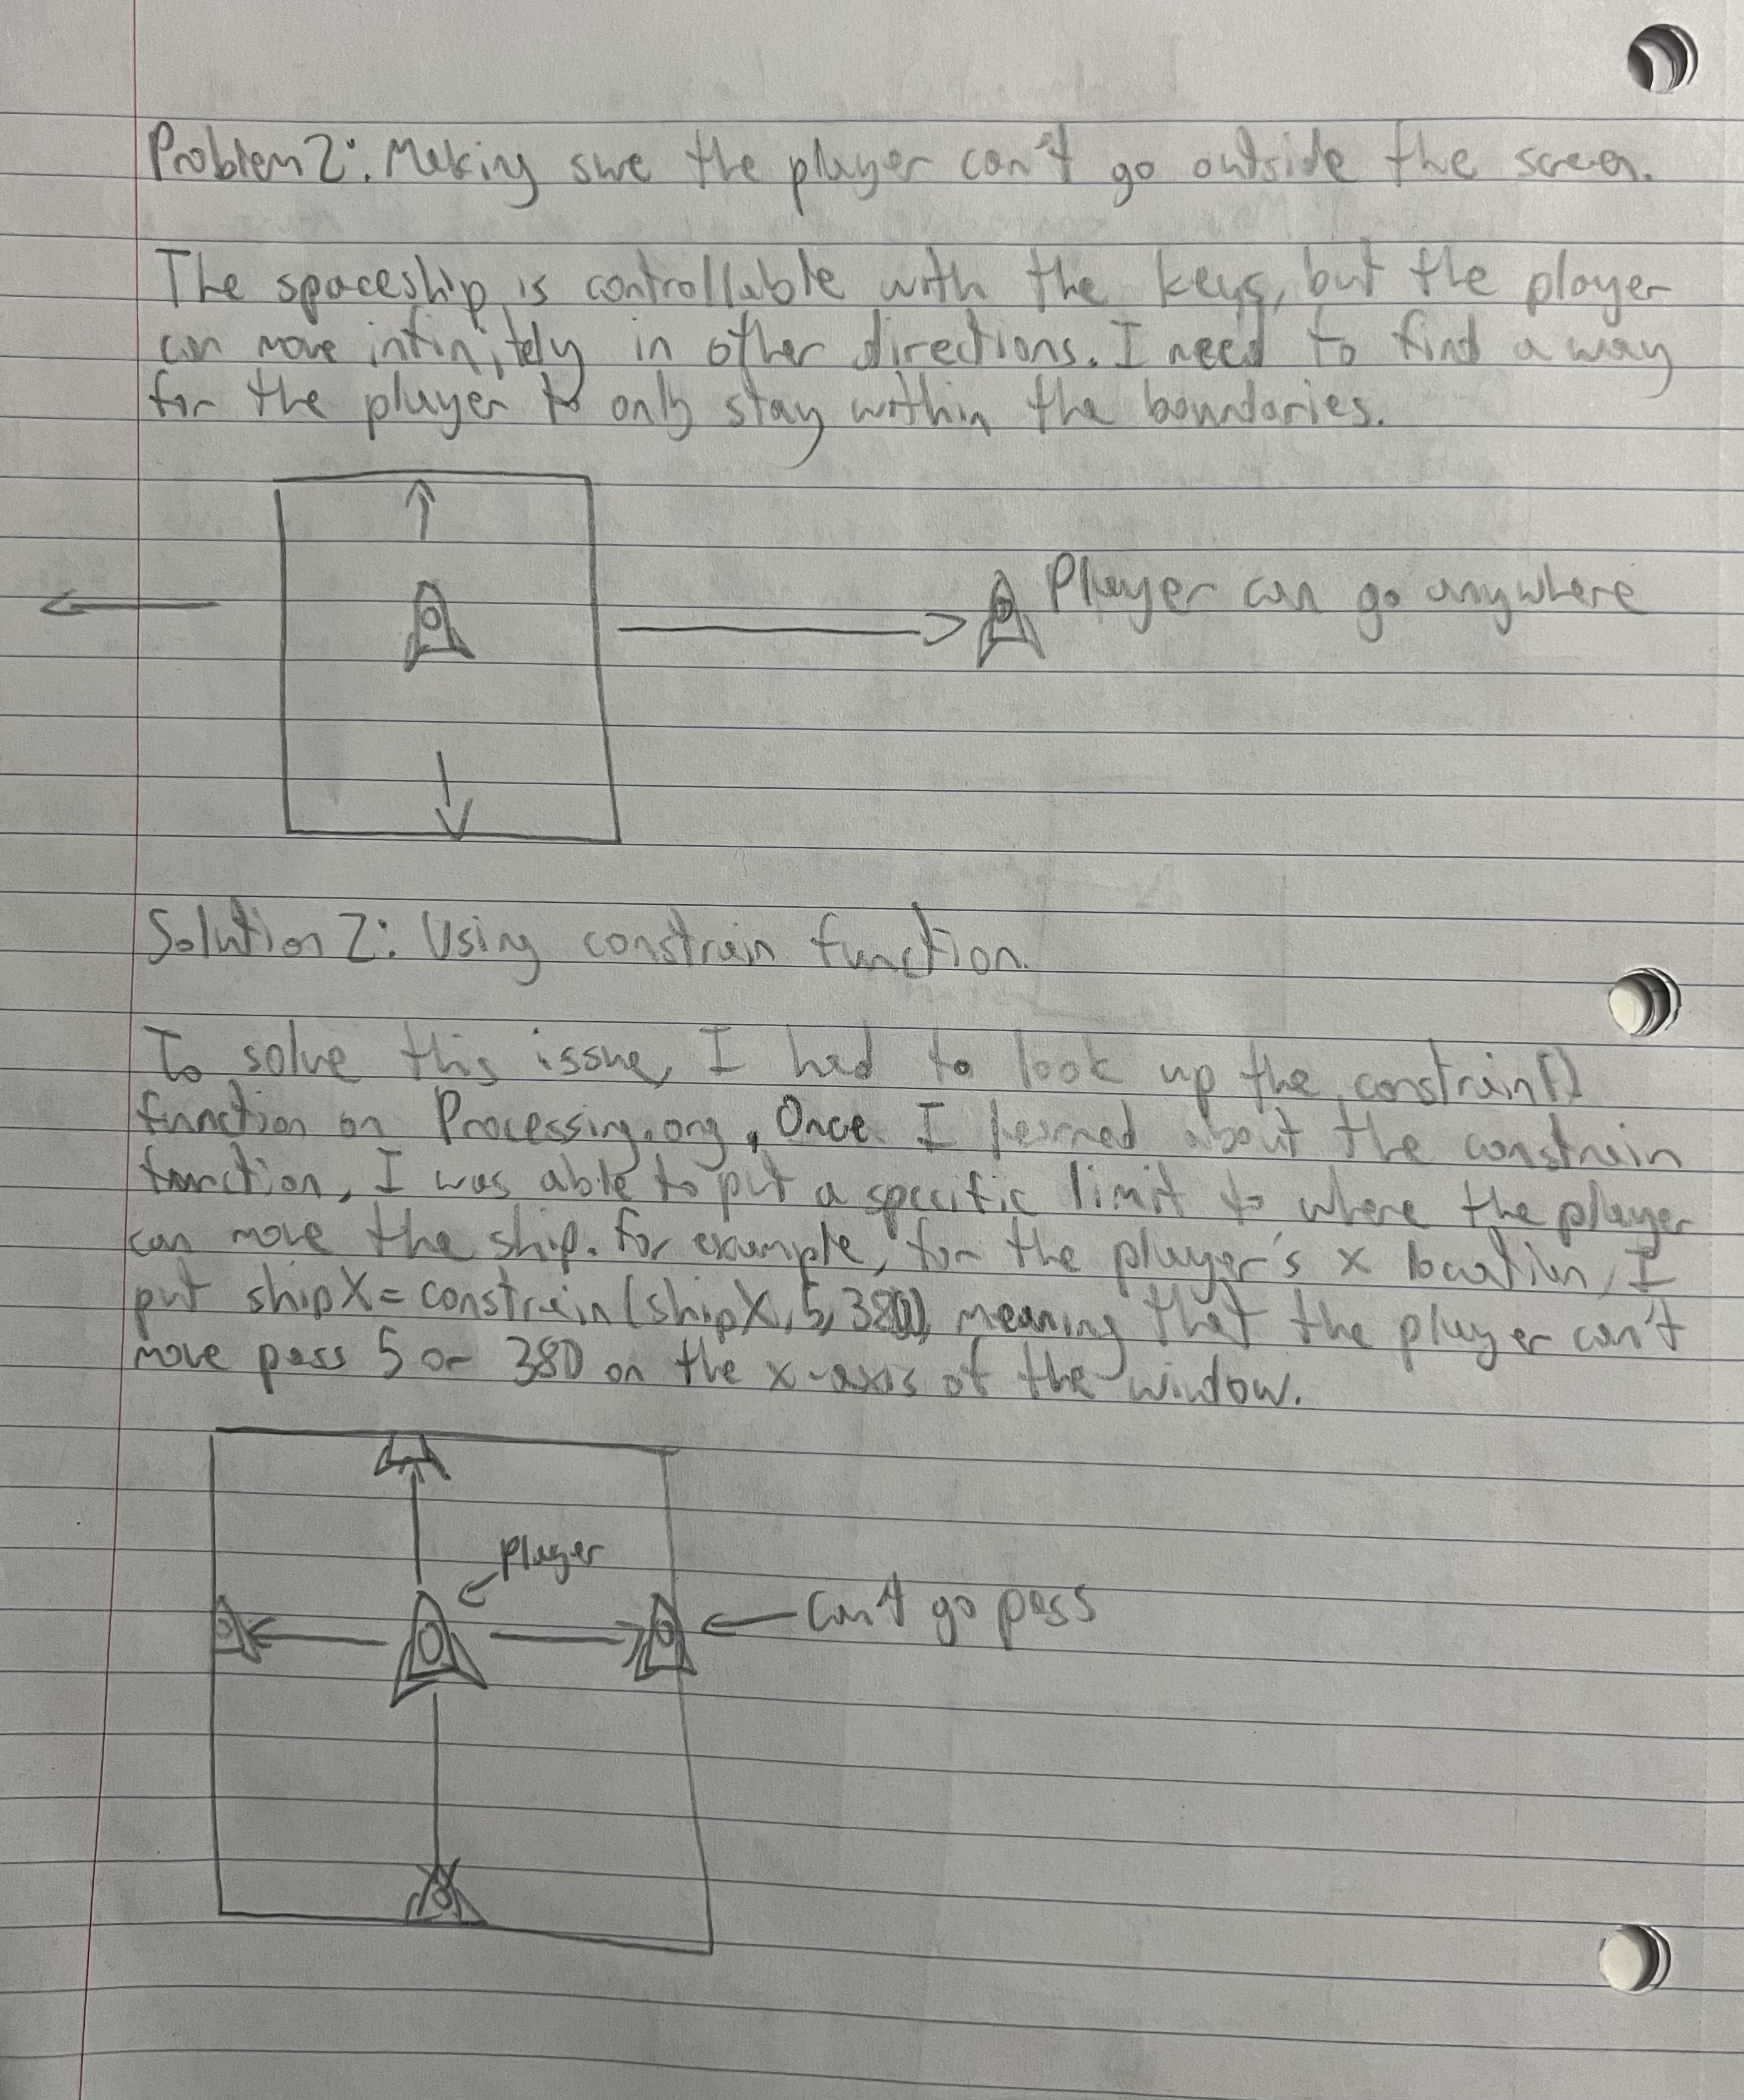 Problem 2: Making sure the player can't go outside the screen.
The spaceship is controllable with the keys, but the player
can move infinitely in other directions. I need to find a way
for the player to only stay within the boundaries.
Player can go anywhere
Solution 2: Using constrain function.
To solve this issue, I had to look up the constrain()
function on Processing.org. Once I learned about the constrain
function, I was able to put a specific limit to where the player
can move the ship. For example, for the player's x location, I
put shipX = constrain(shipX, 5, 380), meaning that the player can't
move pass 5 or 380 on the x-axis of the window.
player
Can't go pass